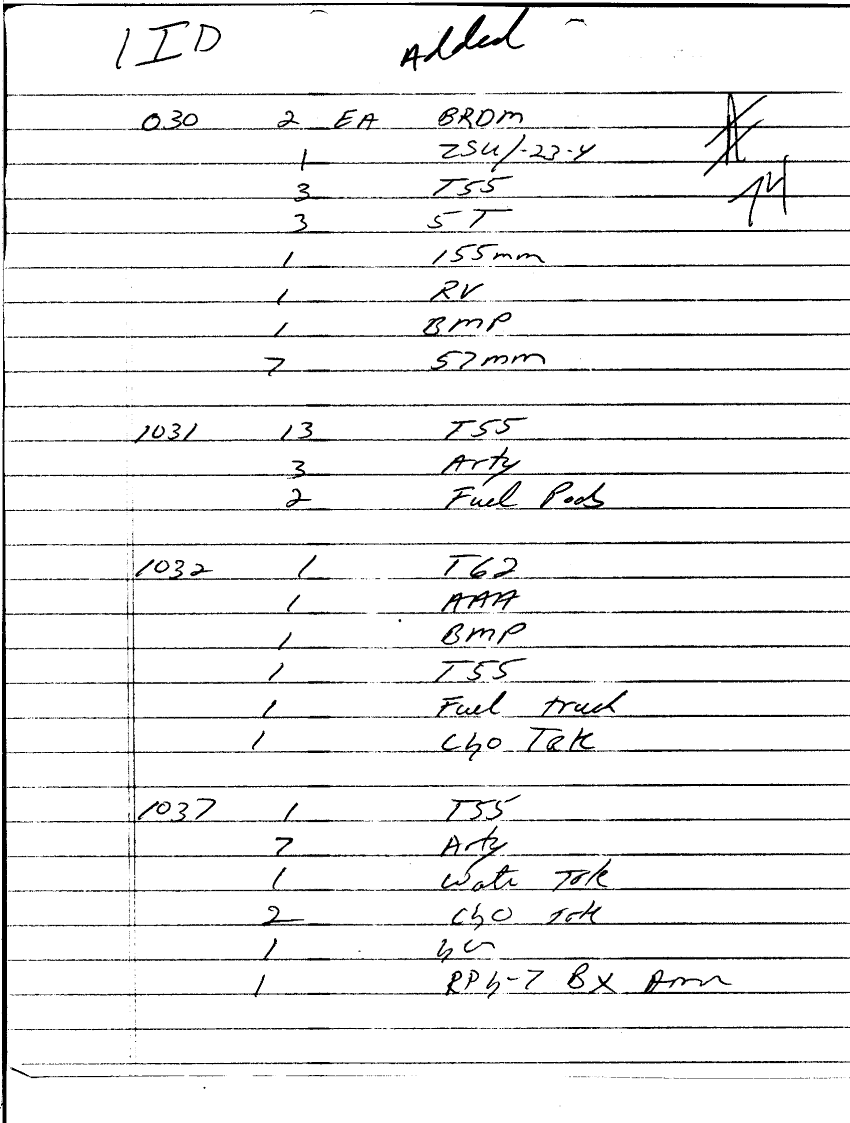 1ID Added
030 2 EA BRDM
1 ZSU/-23-4
3 T55
3 5T
1 155mm
1 RV
1 BMP
7 57mm
1031 13 T55
3 Arty
2 Fuel Pods
1032 1 T62
1 AAA
1 BMP
1 T55
1 Fuel truck
1 Cgo Trk
1037 1 T55
7 Arty
1 Watr Trk
2 Cgo Trk
1
1 RPG-7 BX Amm